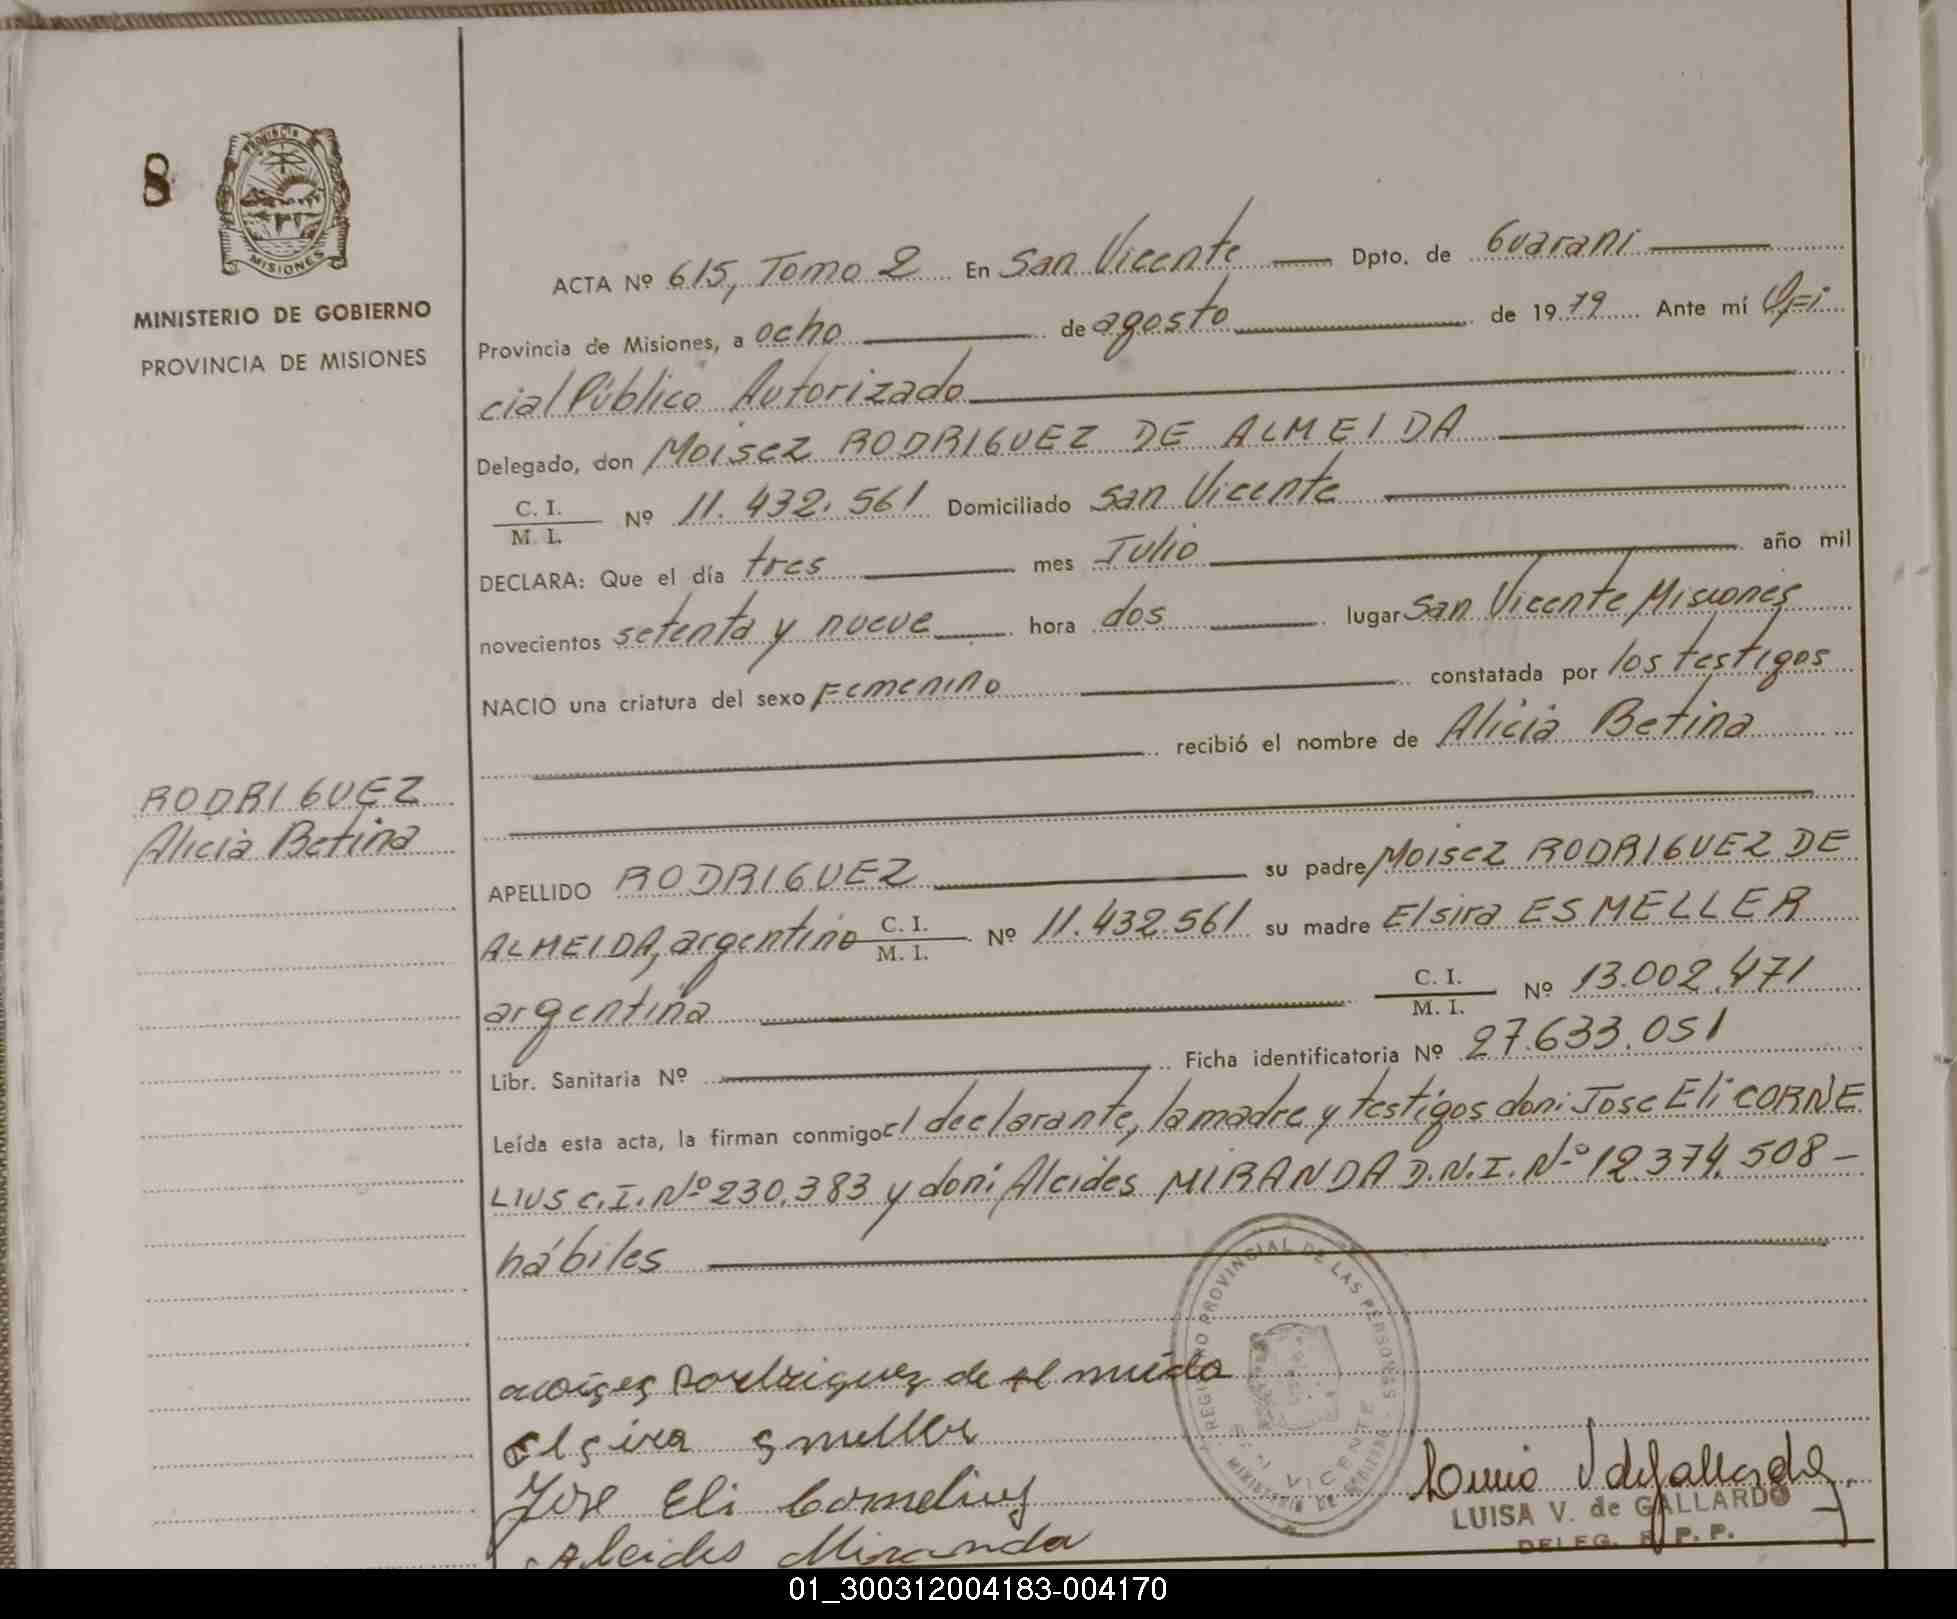 8
PROVINCIA
MISIONES
MINISTERIO DE GOBIERNO
PROVINCIA DE MISIONES
RODRIGUEZ
Alicia Betina
ACTA Nº 615, Tomo 2 En San Vicente Dpto. de Guarani
Provincia de Misiones, a ocho de agosto de 1979 Ante mí Ofi
cial Público Autorizado
Delegado, don Moisez RODRIGUEZ DE ALMEIDA
C. I. / M. I. Nº 11.432.561 Domiciliado San Vicente
DECLARA: Que el día tres mes Julio año mil
novecientos setenta y nueve hora dos lugar San Vicente Misiones
NACIO una criatura del sexo Femenino constatada por los testigos
recibió el nombre de Alicia Betina
APELLIDO RODRIGUEZ su padre Moisez RODRIGUEZ DE
ALMEIDA, argentino C. I. / M. I. Nº 11.432.561 su madre Elsira ESMELLER
argentina C. I. / M. I. Nº 13.002.471
Libr. Sanitaria Nº Ficha identificatoria Nº 27.633.051
Leída esta acta, la firman conmigo el declarante, la madre y testigos don: Jose Eli CORNE
LIUS C.I. Nº 230.383 y don: Alcides MIRANDA D.N.I. Nº 12.374.508 -
hábiles
REGISTRO PROVINCIAL DE LAS PERSONAS
MINISTERIO DE GOBIERNO
VICENTE
moises Rodriguez de Almeida
Elsira Smeller
Jose Eli Cornelius
Alcides Miranda
LUISA V. de GALLARDO
DELEG. R. P. P.
01_300312004183-004170